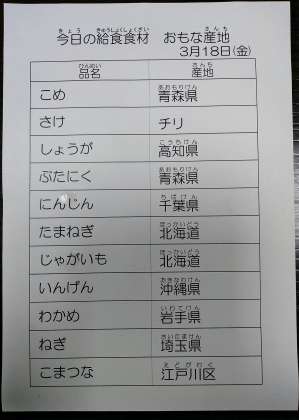 今日の給食食材　おもな産地
3月18日(金)
品名　産地
こめ　青森県
さけ　チリ
しょうが　高知県
ぶたにく　青森県
にんじん　千葉県
たまねぎ　北海道
じゃがいも　北海道
いんげん　沖縄県
わかめ　岩手県
ねぎ　埼玉県
こまつな　江戸川区